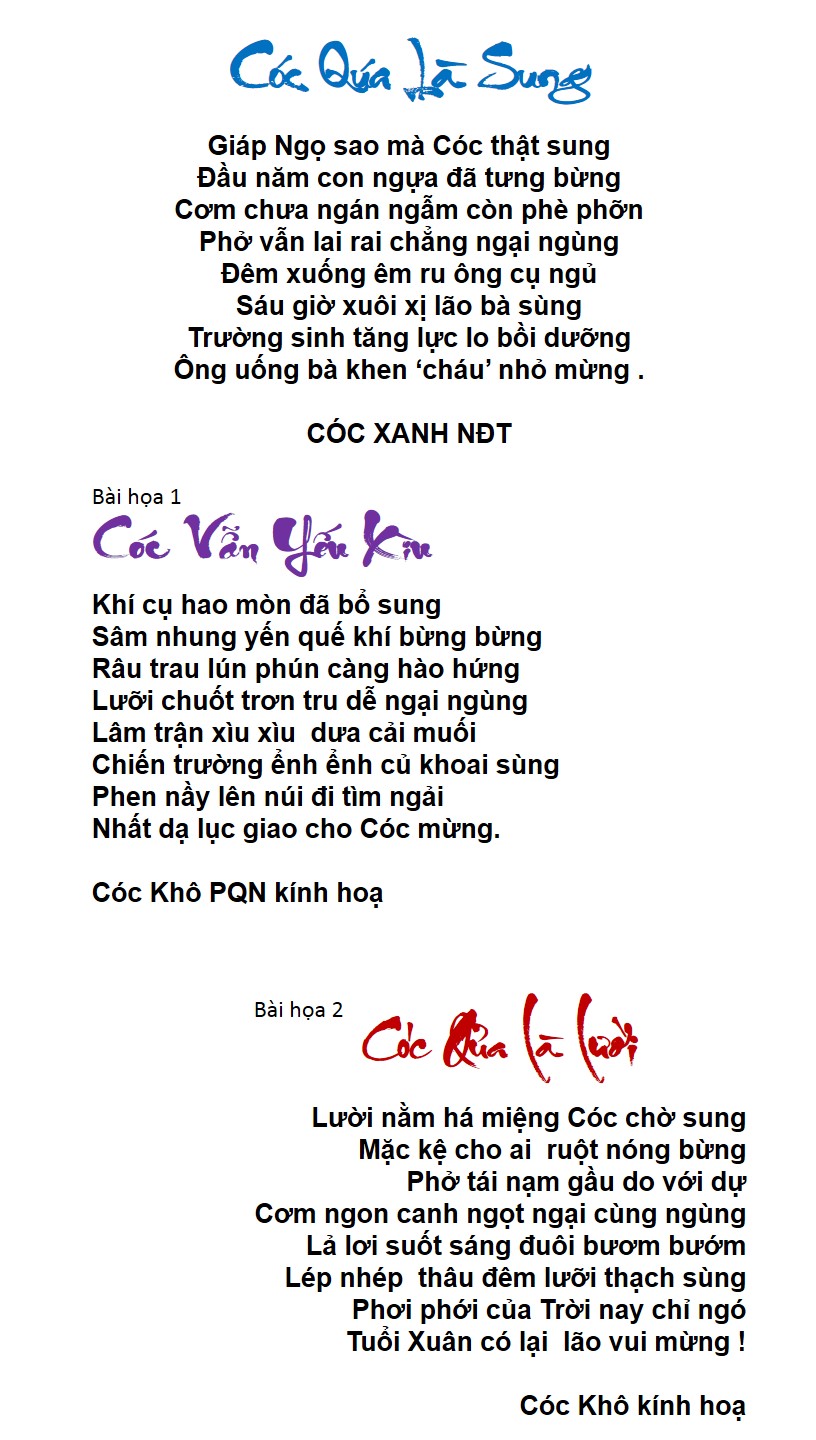 Cóc Qúa Là Sung
Giáp Ngọ sao mà Cóc thật sung
Đầu năm con ngựa đã tưng bừng
Cơm chưa ngán ngẫm còn phè phỡn
Phở vẫn lai rai chẳng ngại ngùng
Đêm xuống êm ru ông cụ ngủ
Sáu giờ xuôi xị lão bà sùng
Trường sinh tăng lực lo bồi dưỡng
Ông uống bà khen ‘cháu’ nhỏ mừng .
CÓC XANH NĐT
Bài họa 1
Cóc Vẫn Yếu Xìu
Khí cụ hao mòn đã bổ sung
Sâm nhung yến quế khí bừng bừng
Râu trau lún phún càng hào hứng
Lưỡi chuốt trơn tru dễ ngại ngùng
Lâm trận xìu xìu dưa cải muối
Chiến trường ểnh ểnh củ khoai sùng
Phen nầy lên núi đi tìm ngải
Nhất dạ lục giao cho Cóc mừng.
Cóc Khô PQN kính hoạ
Bài họa 2
Cóc Qủa Là Lười
Lười nằm há miệng Cóc chờ sung
Mặc kệ cho ai ruột nóng bừng
Phở tái nạm gầu do với dự
Cơm ngon canh ngọt ngại cùng ngùng
Lả lơi suốt sáng đuôi bươm bướm
Lép nhép thâu đêm lưỡi thạch sùng
Phơi phới của Trời nay chỉ ngó
Tuổi Xuân có lại lão vui mừng !
Cóc Khô kính hoạ